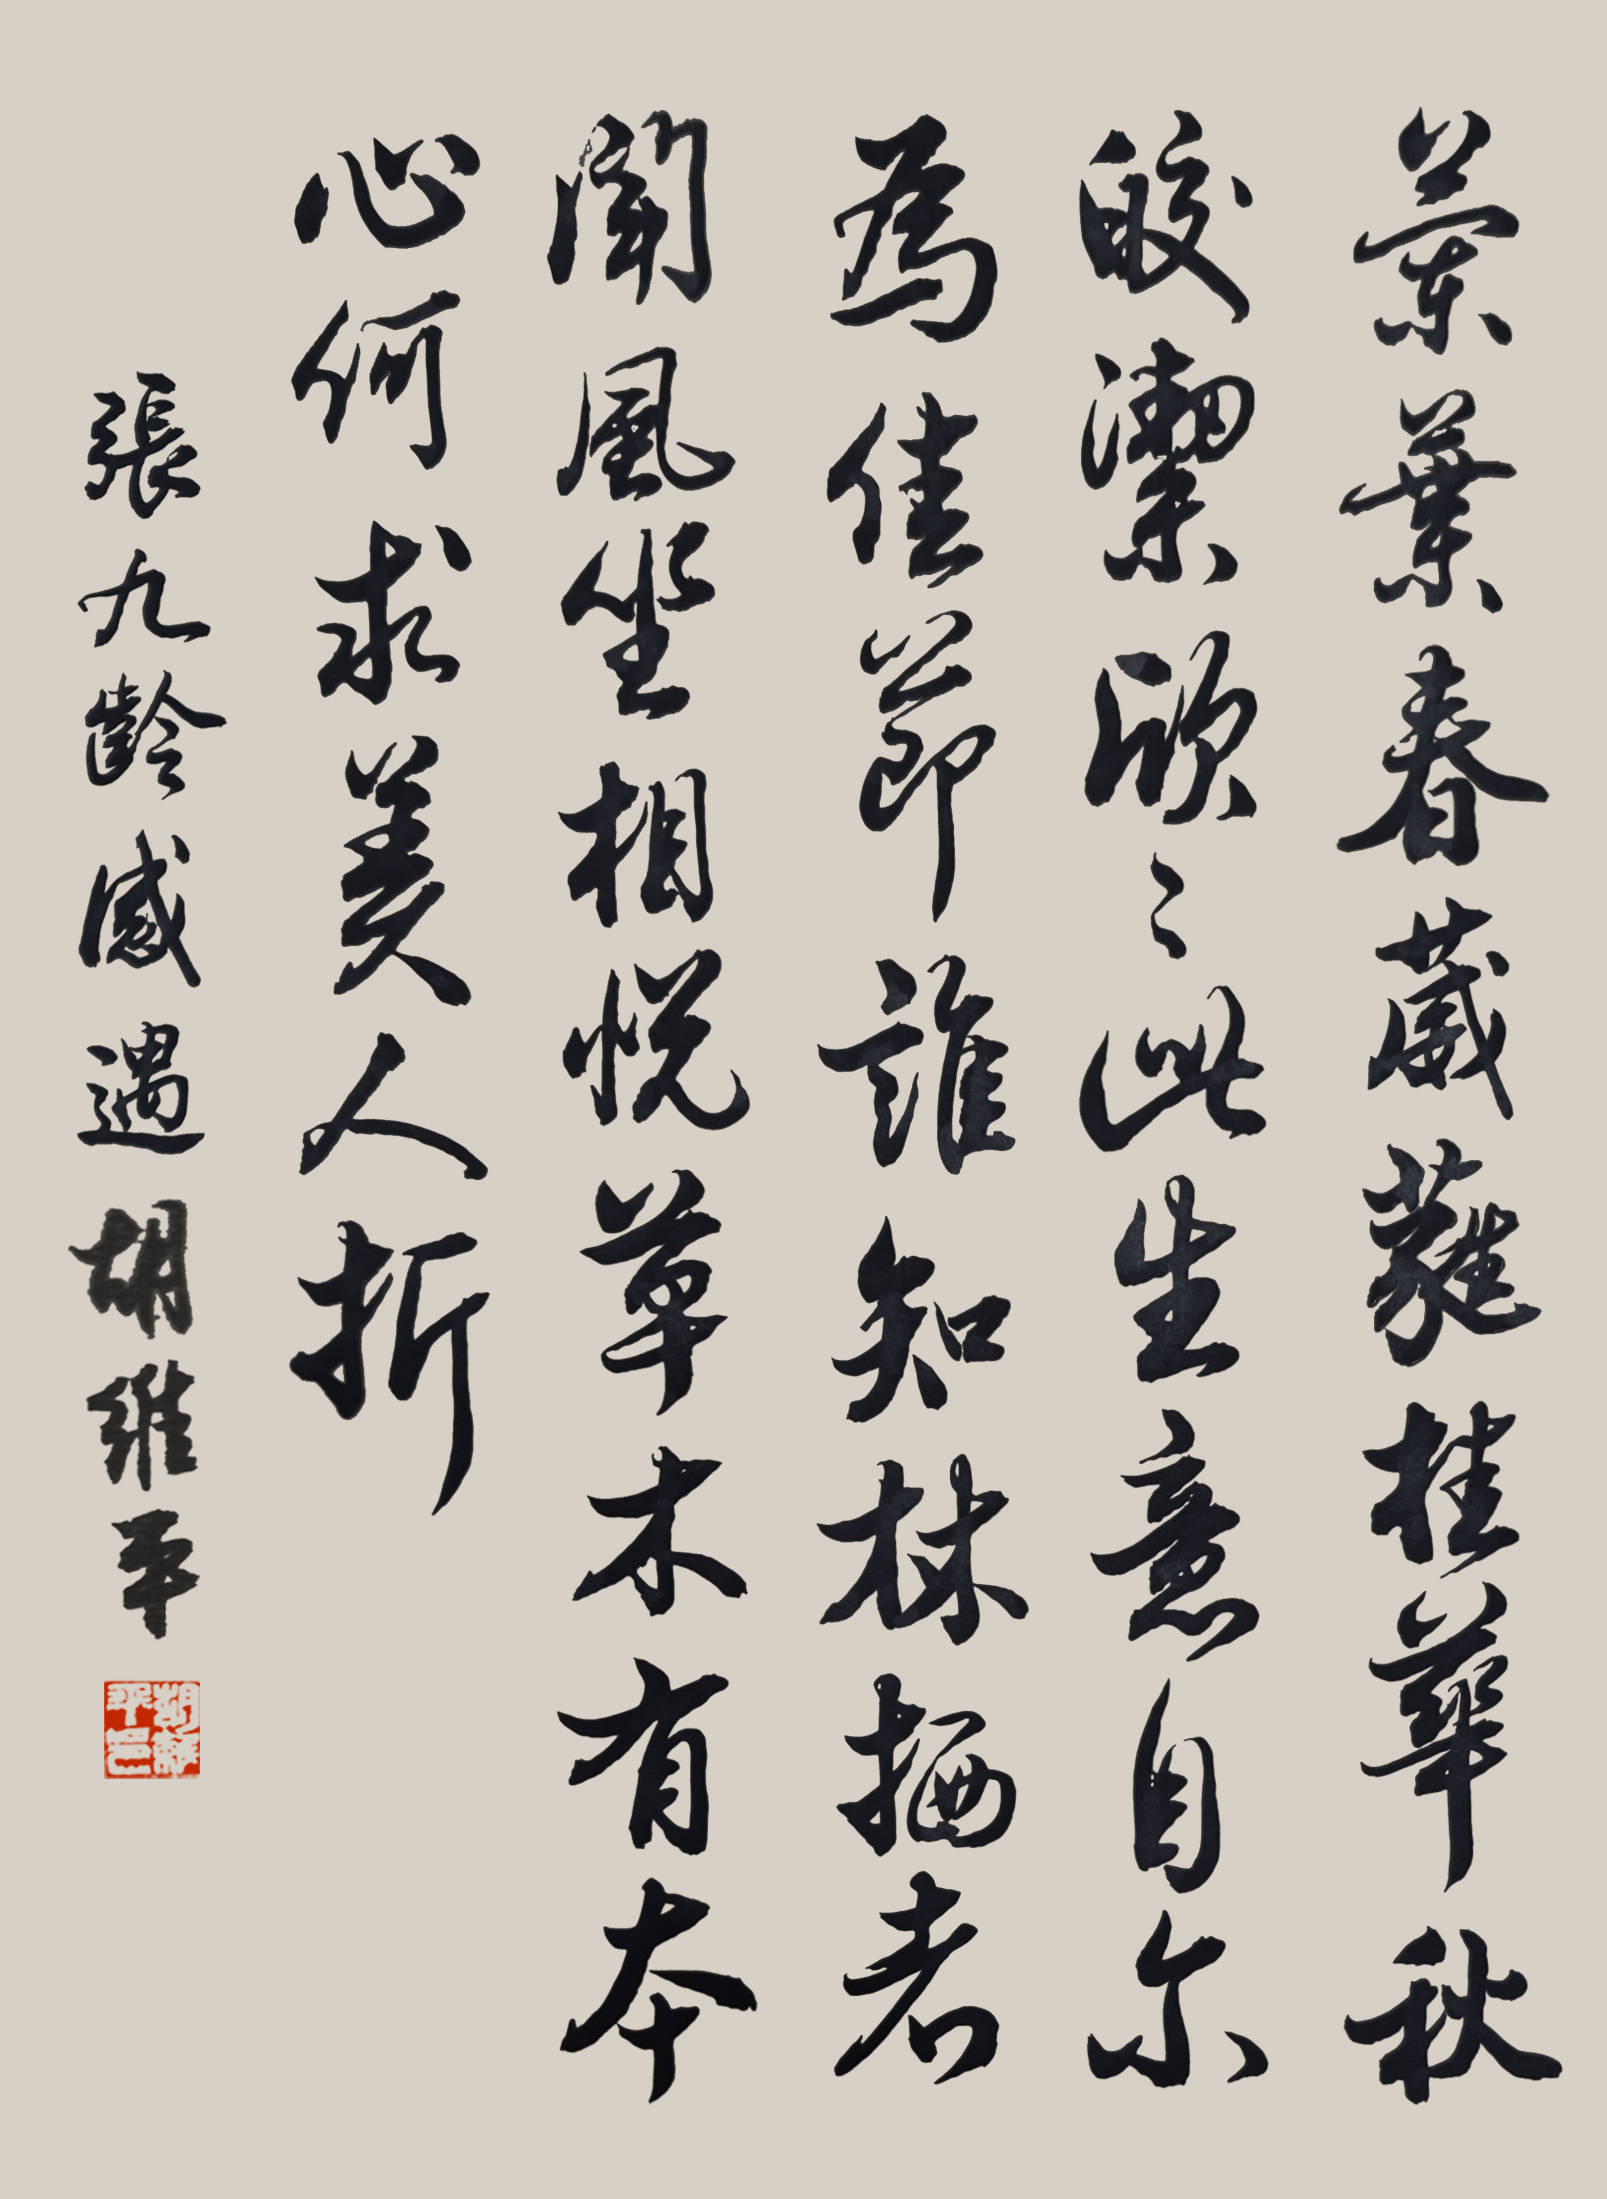 蘭葉春葳蕤桂華秋
皎潔欣〻此生意自尔
為佳節誰知林栖者
聞風坐相悅草木有本
心何求美人折
張九齡感遇胡維平